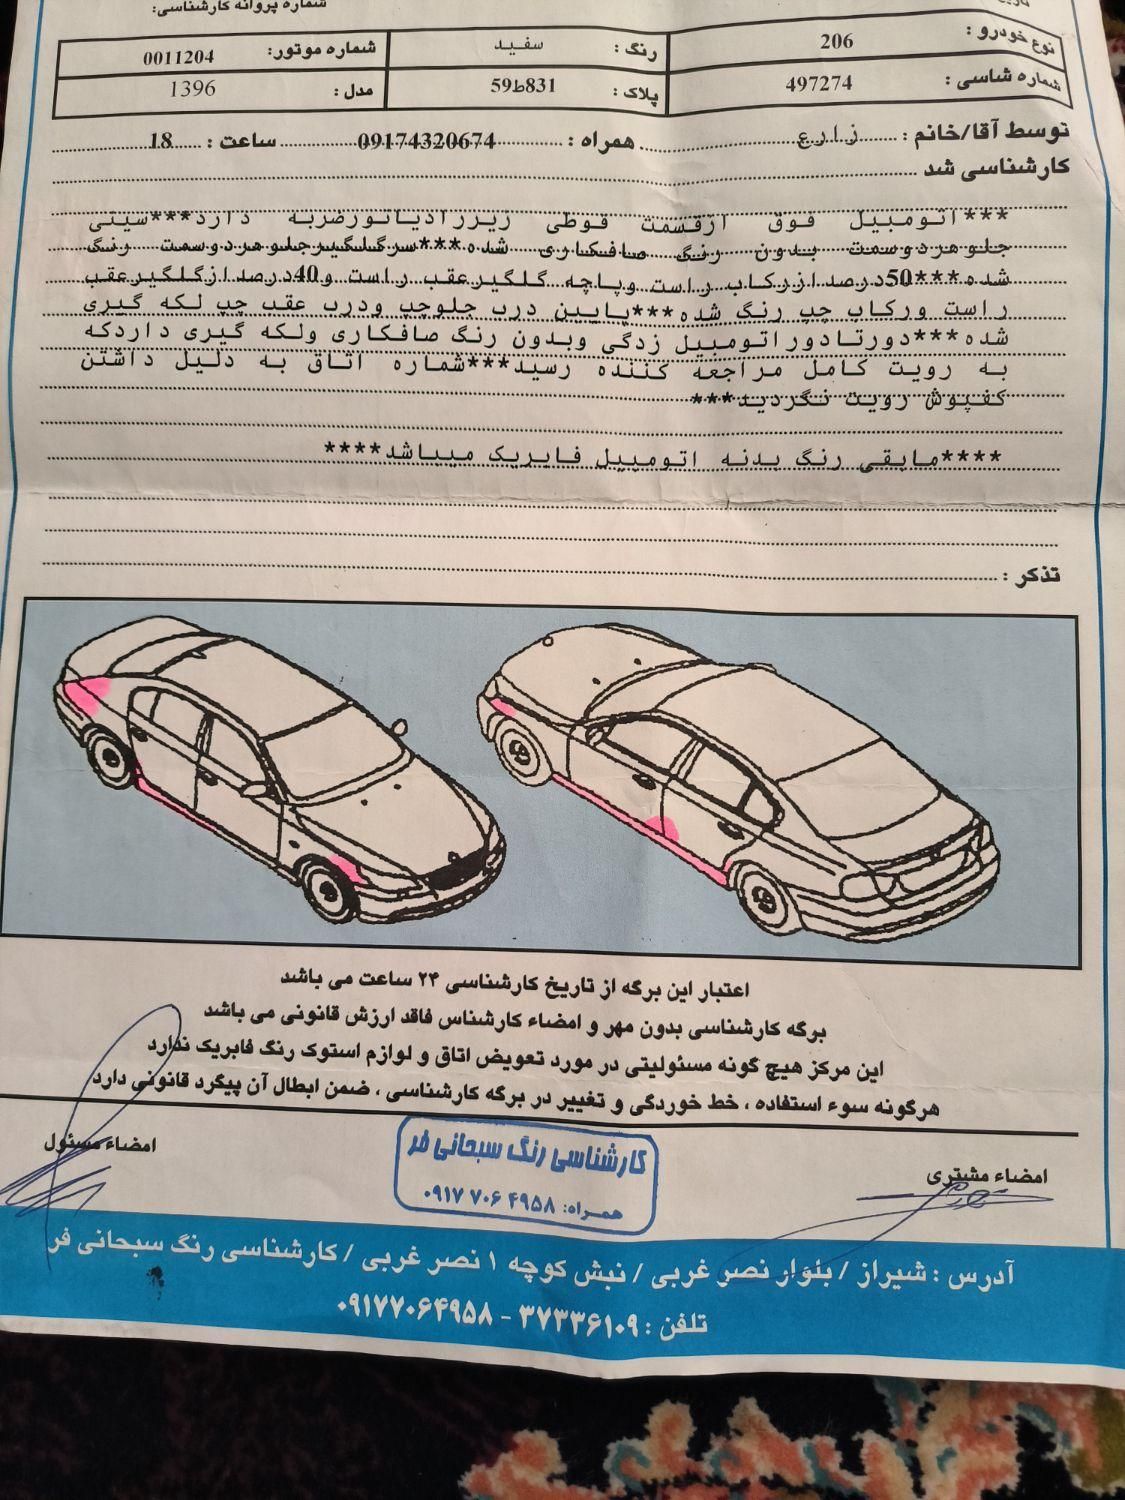 شماره پروانه کارشناسی:
نوع خودرو : 206 رنگ : سفید شماره موتور: 0011204
شماره شاسی : 497274 پلاک : 59ط831 مدل : 1396
توسط آقا/خانم : زارع همراه : 09174320674 ساعت : 18
کارشناسی شد
***اتومبیل فوق ازقسمت قوطی زیررادیاتورضربه دارد***سینی
جلوهردوسمت بدون رنگ صافکاری شده***سرگلگیرجلوهردوسمت رنگ
شده***50درصدازرکاب راست وپاچه گلگیرعقب راست و40درصدازگلگیرعقب
راست ورکاب چپ رنگ شده***پایین درب جلوچپ ودرب عقب چپ لکه گیری
شده***دورتادوراتومبیل زدگی وبدون رنگ صافکاری ولکه گیری داردکه
به رویت کامل مراجعه کننده رسید***شماره اتاق به دلیل داشتن
کفپوش رویت نگردید***
****مابقی رنگ بدنه اتومبیل فابریک میباشد****
تذکر :
اعتبار این برگه از تاریخ کارشناسی ۲۴ ساعت می باشد
برگه کارشناسی بدون مهر و امضاء کارشناس فاقد ارزش قانونی می باشد
این مرکز هیچ گونه مسئولیتی در مورد تعویض اتاق و لوازم استوک رنگ فابریک ندارد
هرگونه سوء استفاده ، خط خوردگی و تغییر در برگه کارشناسی ، ضمن ابطال آن پیگرد قانونی دارد
امضاء مشتری
امضاء مسئول
کارشناسی رنگ سبحانی فر
همراه: ۰۹۱۷ ۷۰۶ ۴۹۵۸
آدرس : شیراز / بلوار نصر غربی / نبش کوچه ۱ نصر غربی / کارشناسی رنگ سبحانی فر
تلفن : ۳۷۳۳۶۱۰۹ - ۰۹۱۷۷۰۶۴۹۵۸